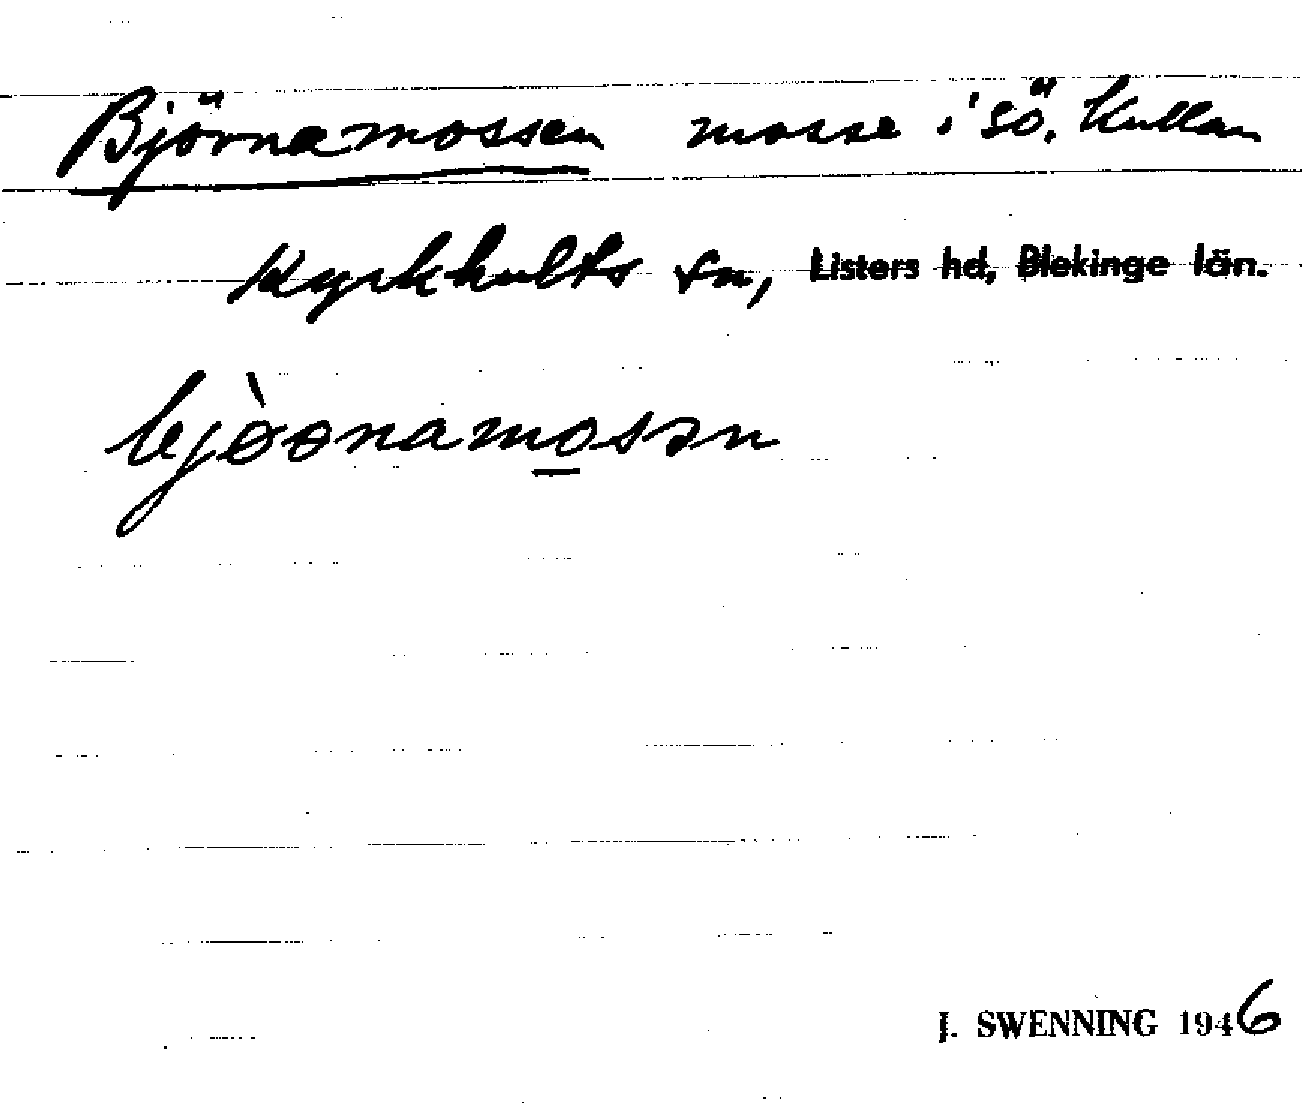 Björnamossen mosse i sö. Kullan
Kyrkhults sn, Listers hd, Blekinge län.
bjòonamosən
J. SWENNING 1946